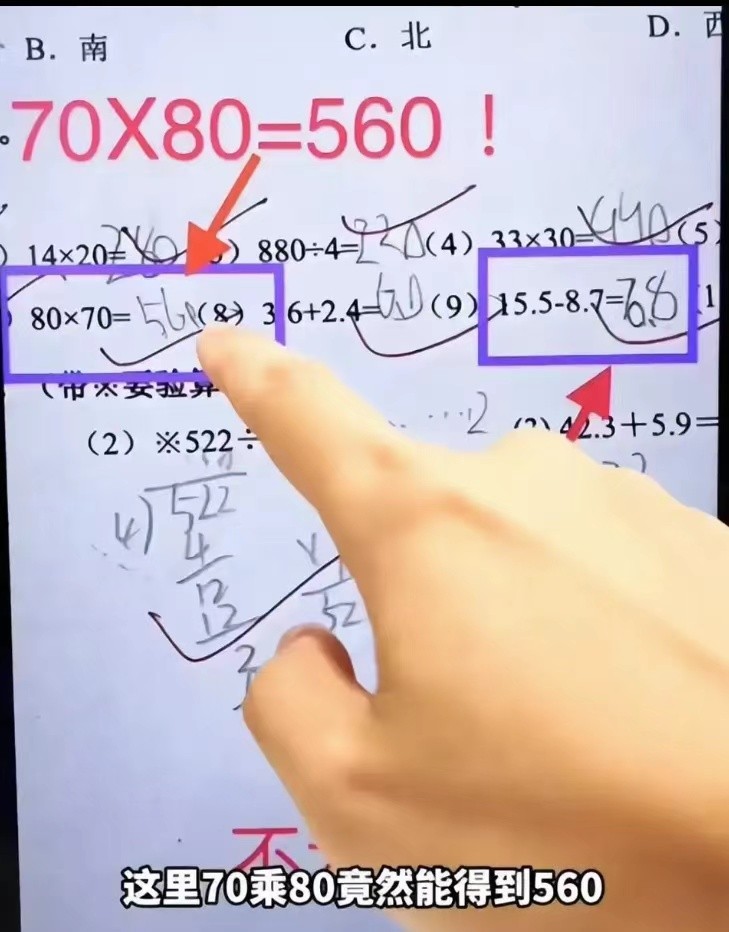 B. 南 C. 北 D. 西
70X80=560！
14×20=280 ) 880÷4=220 (4) 33×30= (5)
80×70=560 (8) 3.6+2.4=6.0 (9) 15.5-8.7=6.8
(带※要验算
(2) ※522÷ ……2 (3) 42.3+5.9=
4) 522
4
12
12
2
52
不
这里70乘80竟然能得到560